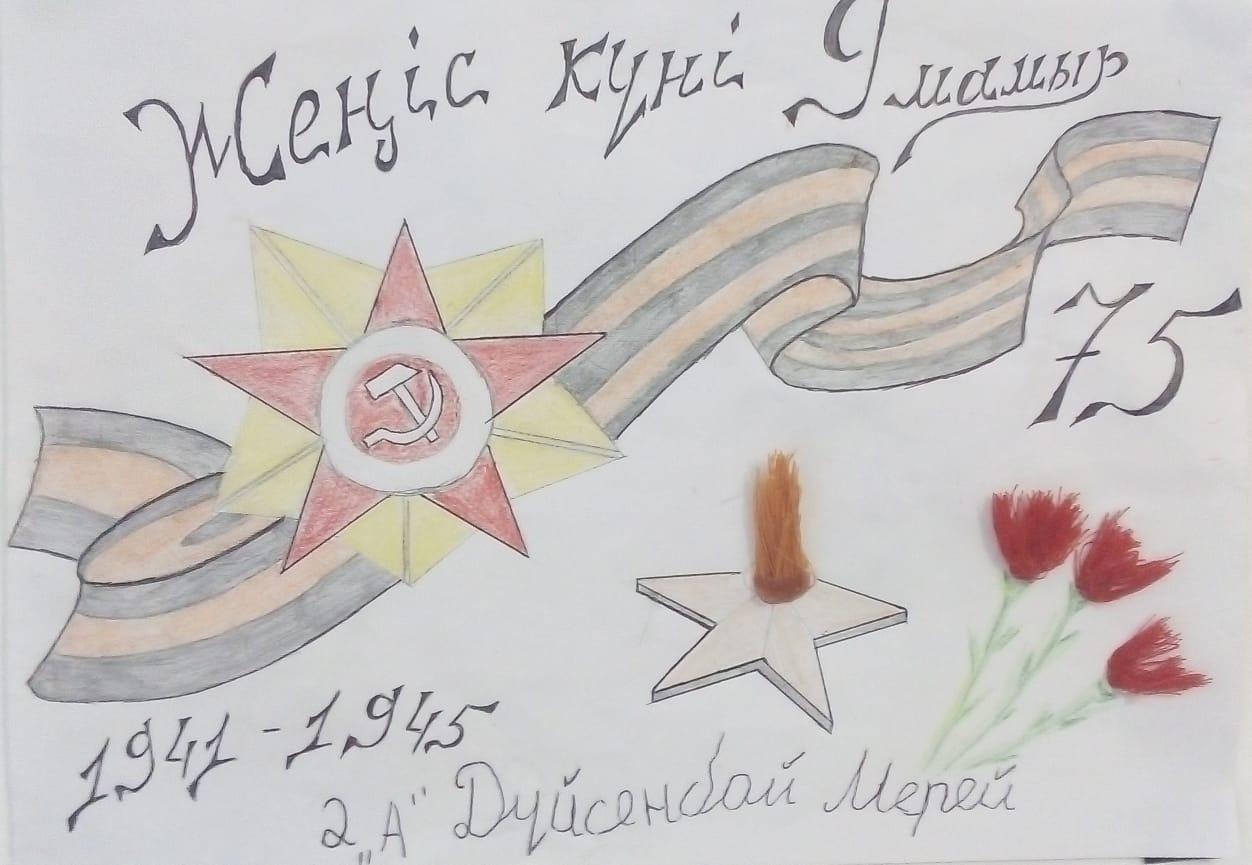 Жеңіс күні 9 мамыр
75
1941-1945
2 „А" Дүйсенбай Мерей